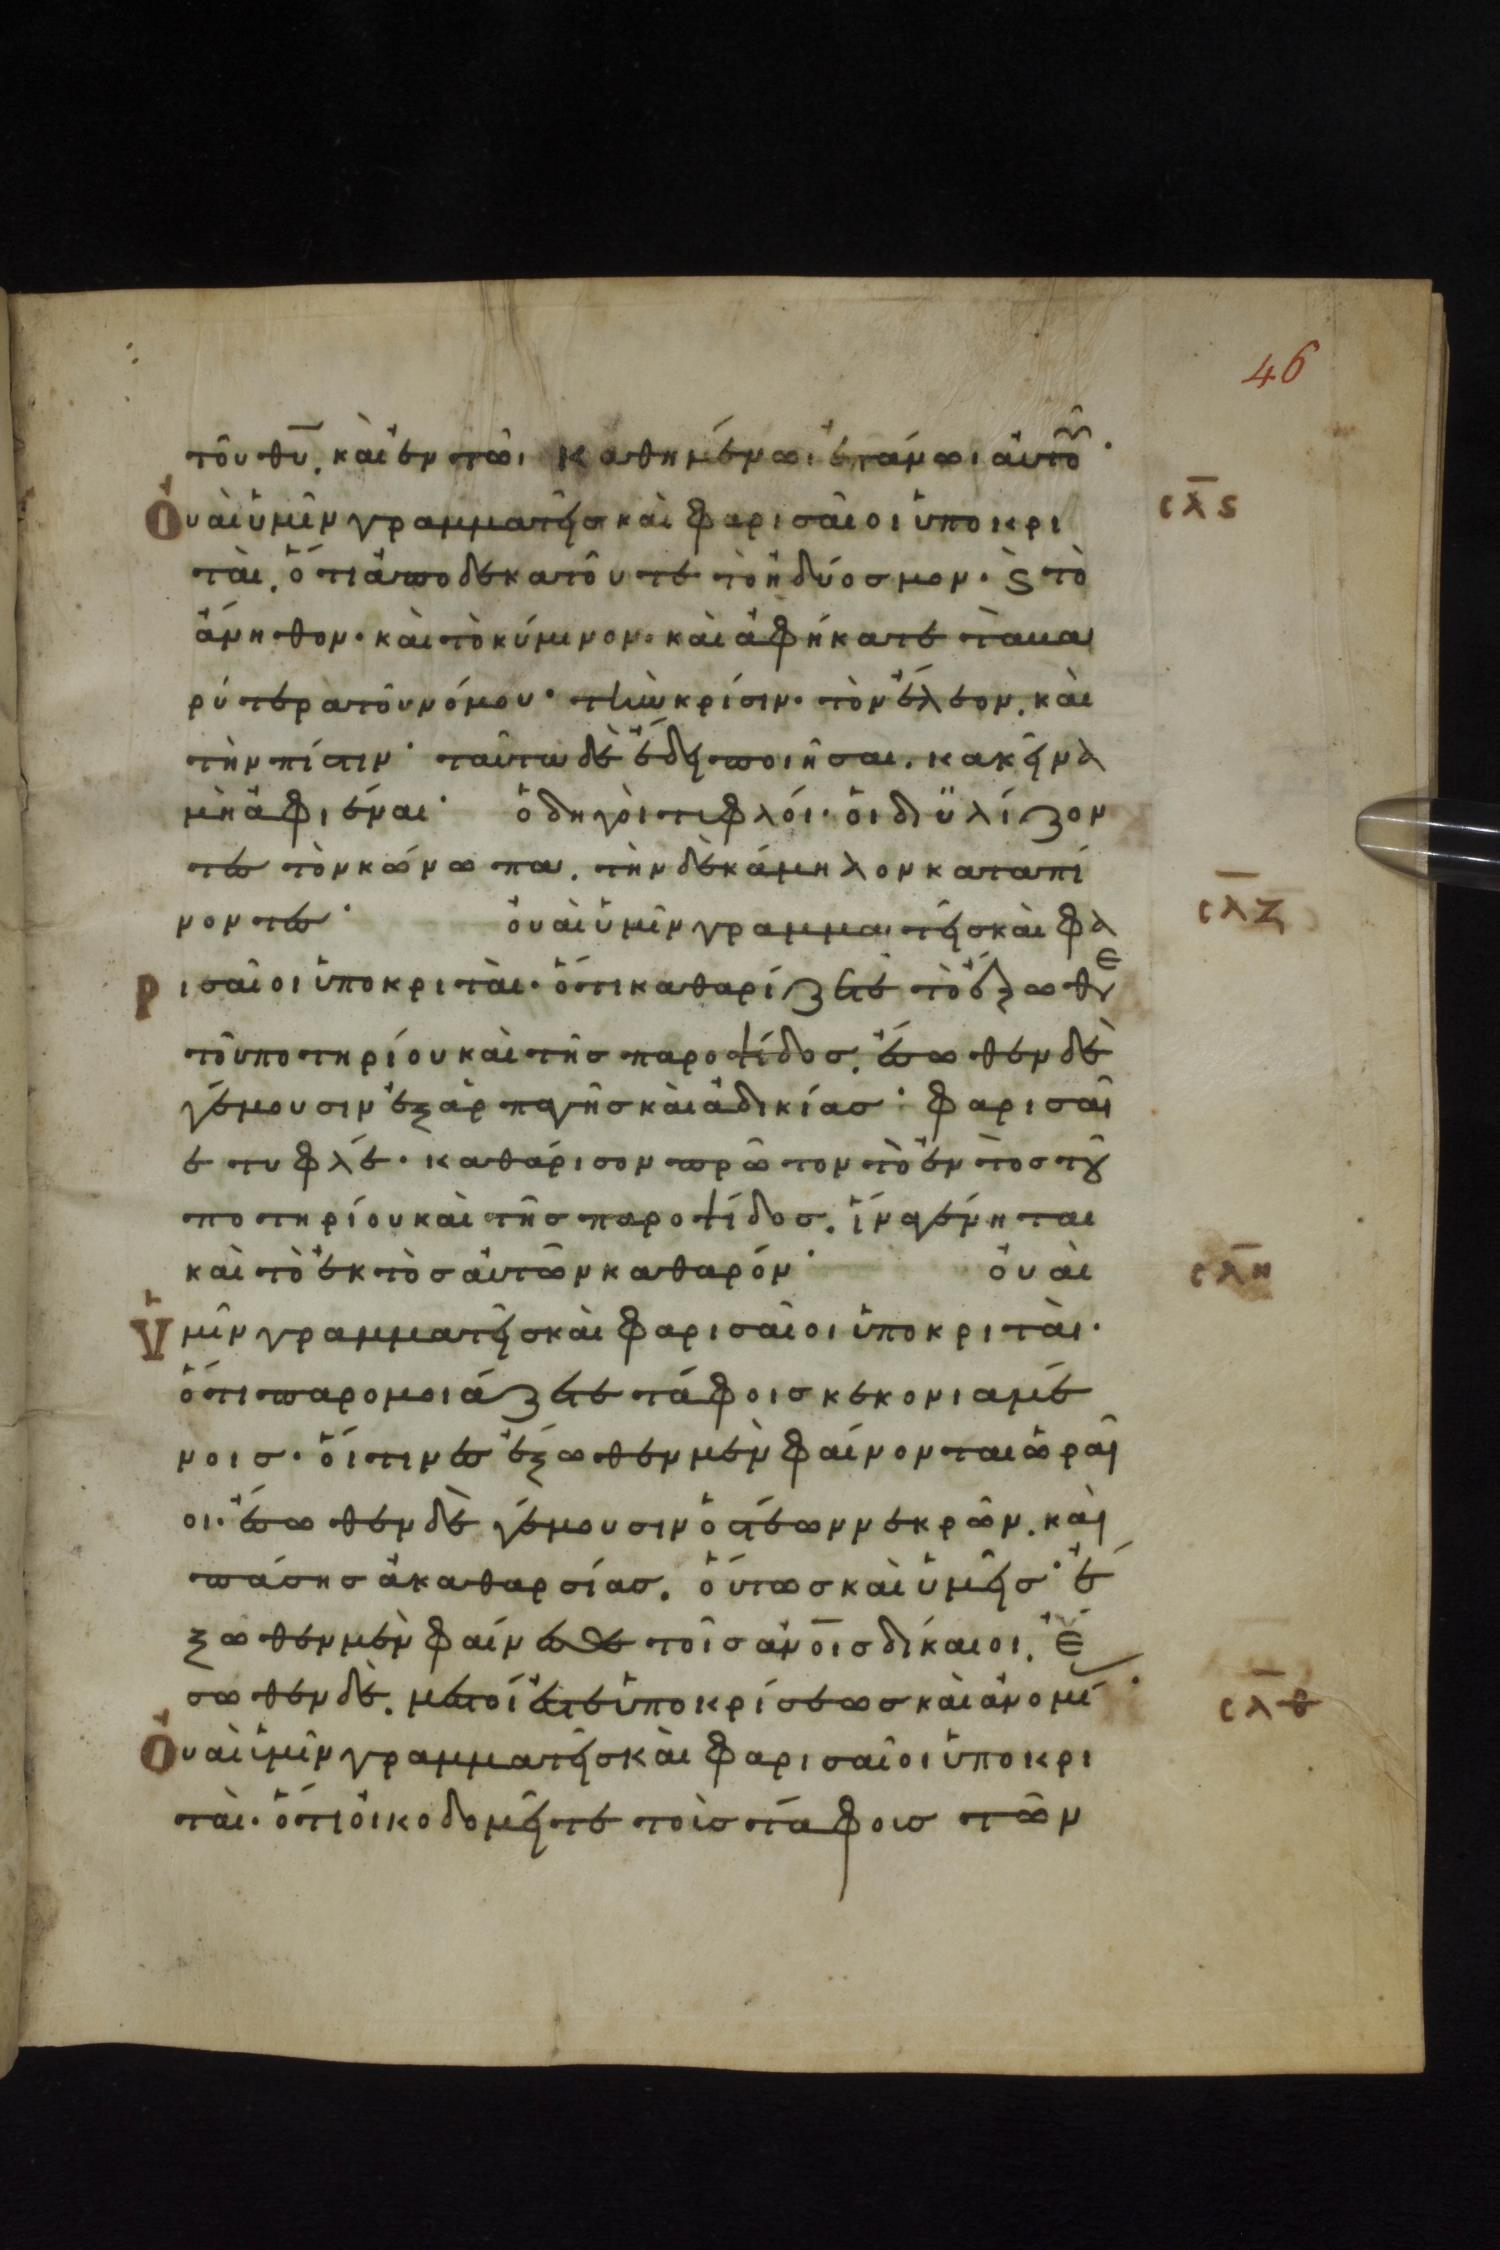 46
τοῦ θ̅υ̅, καὶ ἐν τῶι καθημένωι ἐπάνωι ἀυτοῦ·
Ὀυαὶ ὑμῖν γραμματεῖσ καὶ φαρισαῖοι ὑποκρι
ταὶ, ὅτι ἀποδεκατοῦτε τὸ ἡδύοσμον· ϛ τὸ
ἄνηθον· καὶ τὸ κύμινον· καὶ ἀφήκατε τὰ βα
ρύτερα τοῦ νόμου· τὴν κρίσιν· τὸν ἔλεον, καὶ
τὴν πίστιν· ταῦτα δὲ ἔδει ποιῆσαι, κακεῖνα
μὴ ἀφιέναι· ὁδηγοὶ τυφλοί· ὁι διϋλίζον
τεσ τὸν κώνωπα, τὴν δὲ κάμηλον καταπί
νοντεσ· ὀυαὶ ὑμῖν γραμματεῖσ καὶ φα
ρισαῖοι ὑποκριταὶ· ὅτι καθαρίζετε τὸ ἔξωθεν
τοῦ ποτηρίου καὶ τῆσ παροψίδοσ, ἔσωθεν δὲ
γέμουσιν ἐξ ἁρπαγῆσ καὶ ἀδικίασ· φαρισαῖ
ε τυφλέ· καθάρισον πρῶτον τὸ ἐντὸσ τοῦ
ποτηρίου καὶ τῆσ παροψίδοσ, ἵνα γένηται
καὶ τὸ ἐκτὸσ ἀυτῶν καθαρόν· ὀυαὶ
ὑμῖν γραμματεῖσ καὶ φαρισαῖοι ὑποκριταὶ·
ὅτι παρομοιάζετε τάφοισ κεκονιαμέ
νοισ· ὅιτινεσ ἔξωθεν μὲν φαίνονται ὡραῖ
οι· ἔσωθεν δὲ γέμουσιν ὀστέων νεκρῶν, καὶ
πάσησ ἀκαθαρσίασ, ὅυτωσ καὶ ὑμεῖσ· ἔ
ξωθεν μὲν φαίνεσθε τοῖσ ἀν̅ο̅ισ δίκαιοι, ἔ
σωθεν δὲ, μεστοί ἐστε ὑποκρίσεωσ καὶ ἀνομί·
Ὀυαὶ ὑμῖν γραμματεῖσ καὶ φαρισαῖοι ὑποκρι
ταὶ· ὅτι ὀικοδομεῖτε τοὶσ τάφοισ τῶν
ϲλ̅ϛ
ϲλ̅ζ
ϲλ̅η
ϲλ̅θ